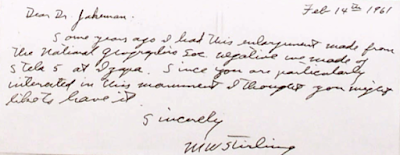 Feb 14th 1961
Dear Dr Jakeman.
Some years ago I had this enlargement made from
the National Geographic Soc. negative we made of
Stela 5 at Izapa. Since you are particularly
interested in this monument I thought you might
like to have it.
Sincerely
M W Stirling